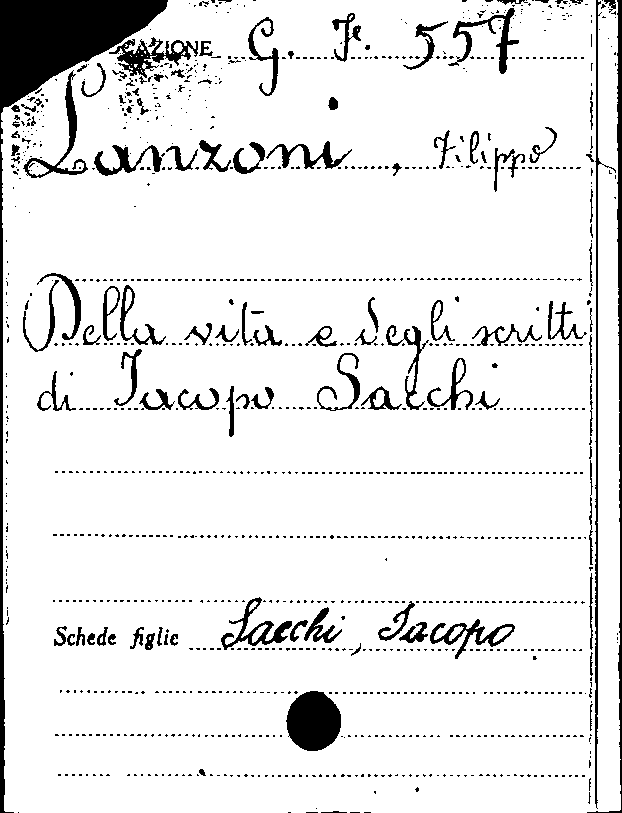 CAZIONE G. Fe. 557
Lanzoni, Filippo
Della vita e degli scritti
di Jacopo Sacchi
Schede figlie Sacchi, Jacopo